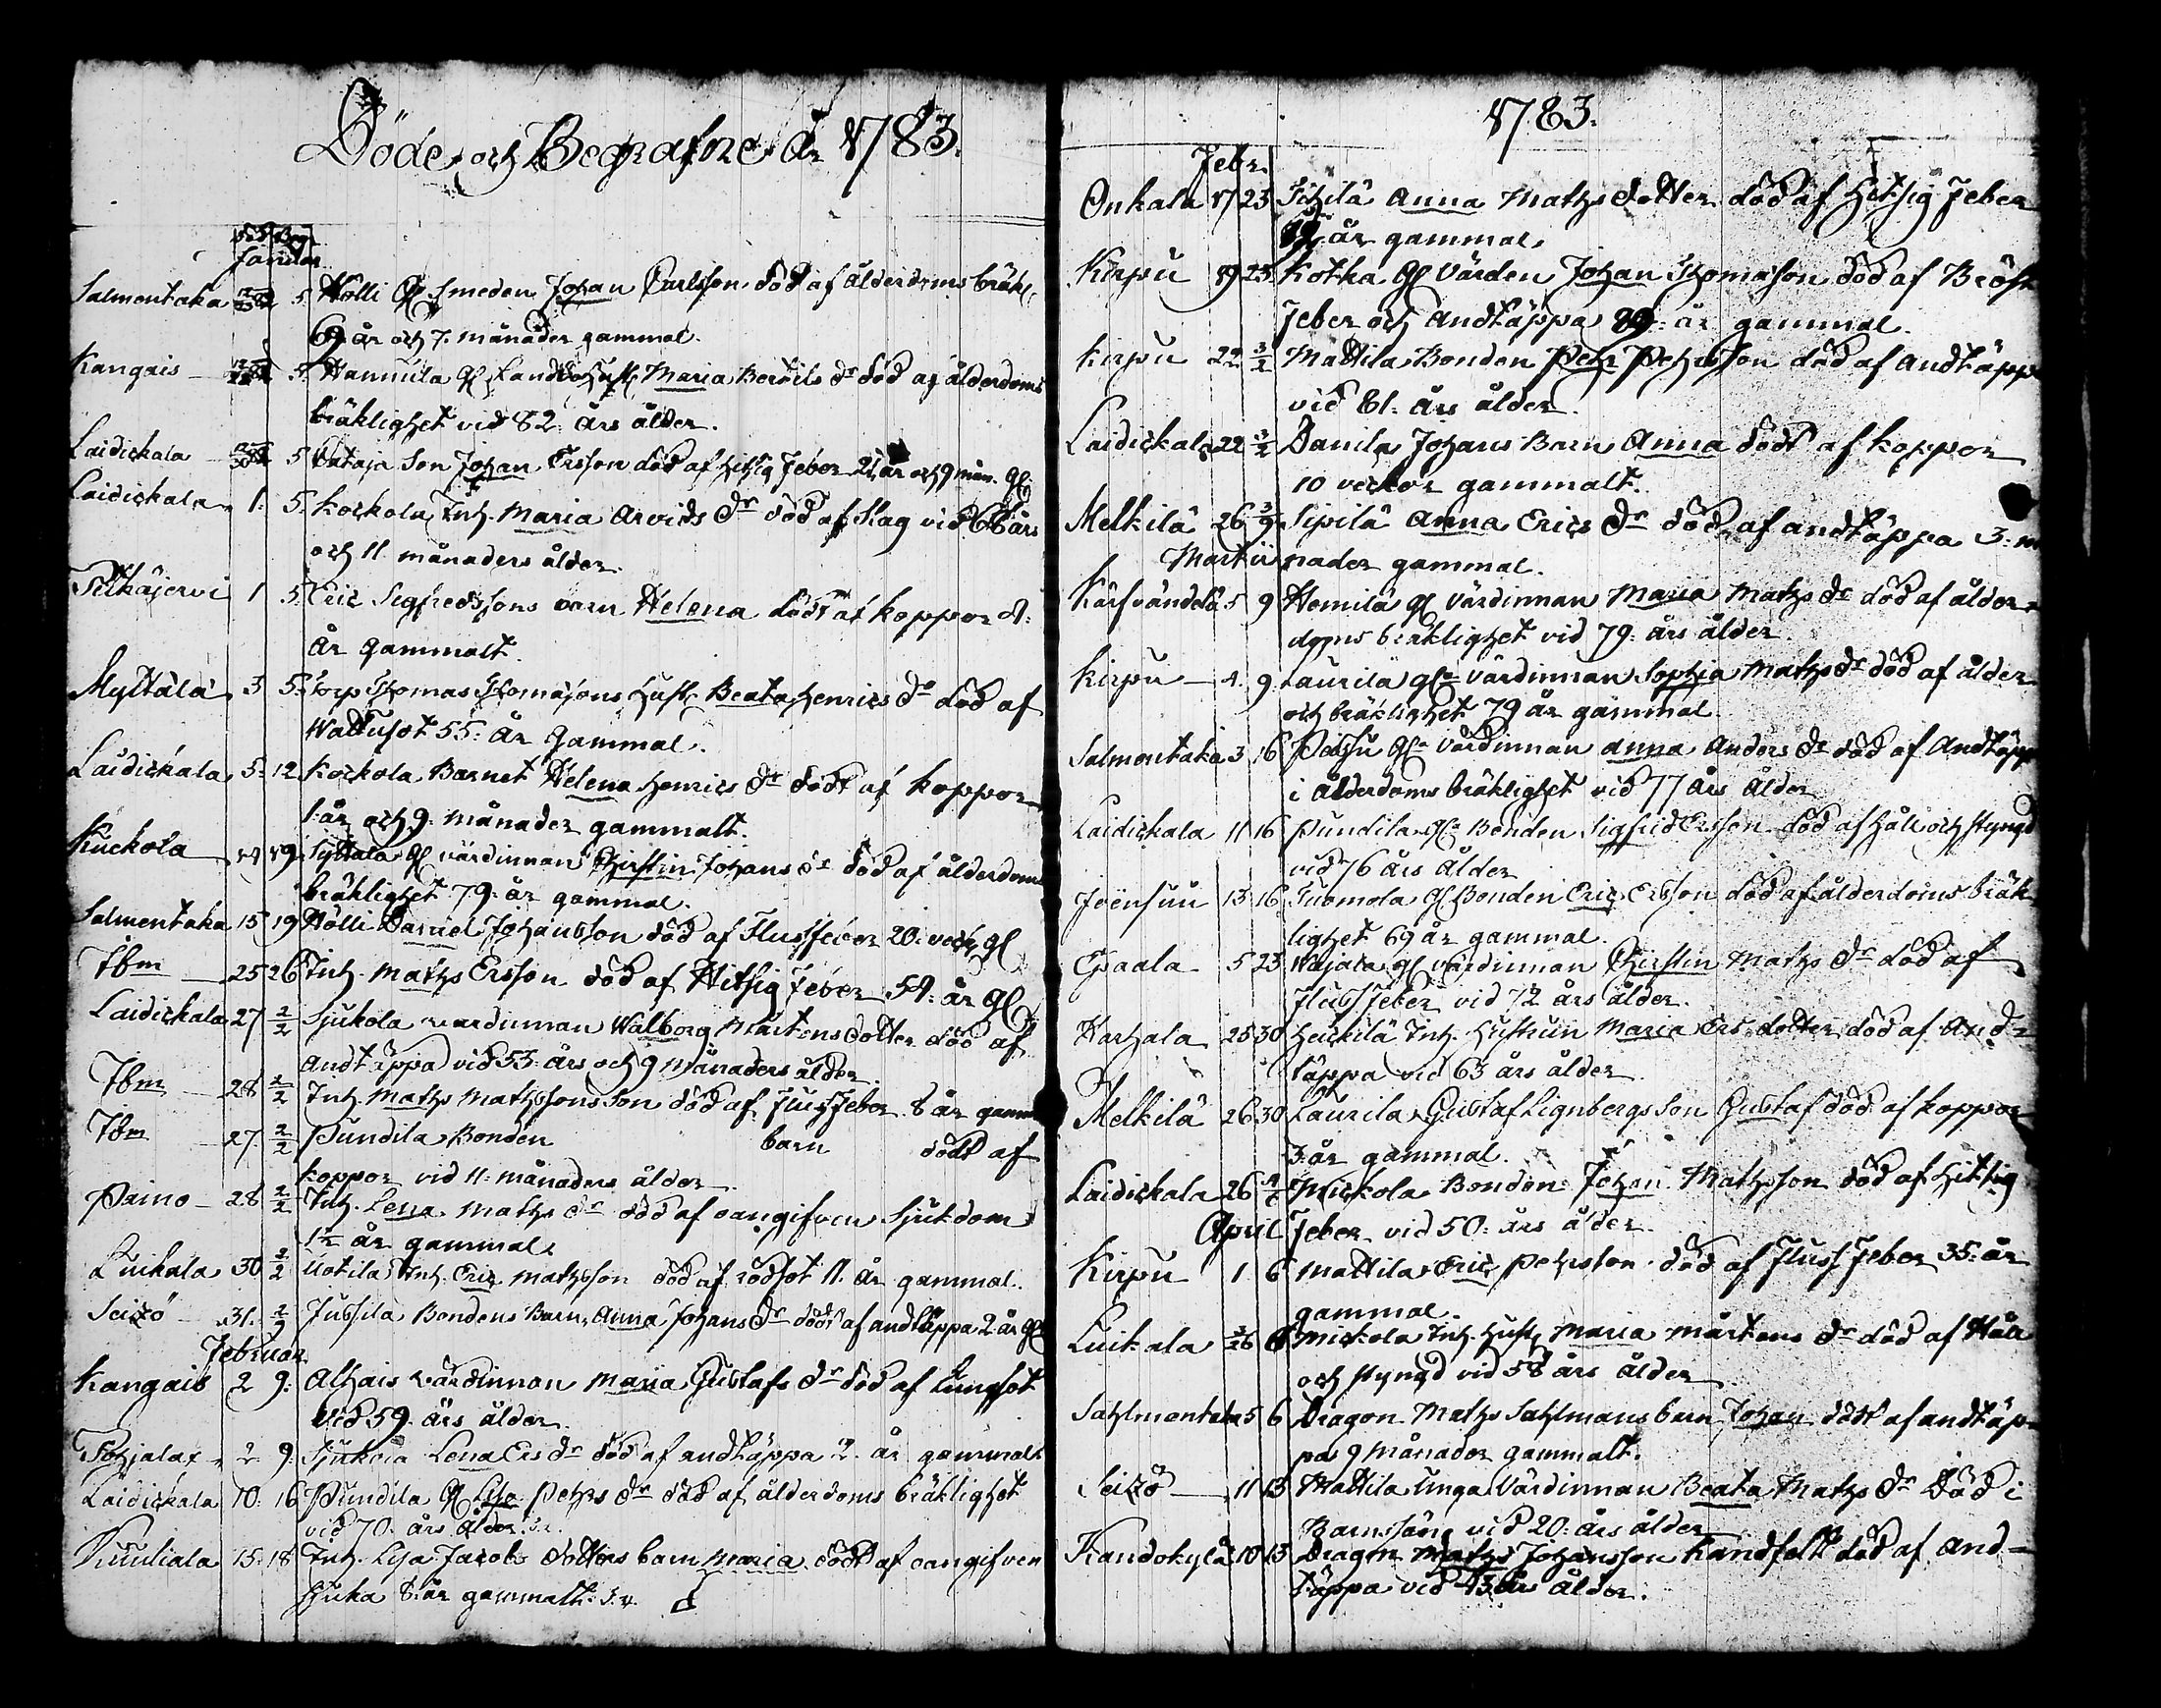 Döde och Begrafne År 1783.
Död Begr
Januar
Salmentaka 5. Holli Gl Smeden Johan Carlsson död af ålderdoms bräkl:
69 år och 7. månader gammal.
Kangais 5. Hannula Gl Hust Maria Bertils dr död af ålderdoms
bräklighet vid 82. års ålder.
Laidickala 5 Cataja Son Johan Ersson död af hitsig feber 21 år och 9 mån. Gl
Laidickala 1. 5. Kockola Inh. Maria Arvids dr död af Slag vid 66 års
och 11. månaders ålder.
1 5. Eric Segfredssons barn Helena dödt af koppor 4.
år gammalt.
Myttälä 3 5. Torp Thomas Thomasons Hust Beata Henrics dr död af
Wattusot 55. år gammal.
Laidickala 5. 12 Kockola Barnet Helena Henrics dr dödt af koppor
1. år och 9. månader gammalt.
Kuckola 14 19. Syttälä Gl värdinnan Christin Johans dr död af ålderdoms
bräklighet 79. år gammal.
Salmentaka 15 19 Holli Daniel Johansson död af Flussfeber 20. veck. gl
Ibm 25 26 Inh. Maths Ersson död af Hitsig feber 54. år gl
Laidickala 27 2/2 Sjukola värdinnan Walborg Mårtensdotter död af
Andtäppa vid 53. års och 9 Månaders ålder.
Ibm 28 2/2 Inh. Maths Mathssons Son död af Flussfeber 8 år gamm
Ibm 27. 2/2 Pundila Bonden barn dödt af
koppor vid 11. månaders ålder
Paino 28 2/2 Inh. Lena Maths dr död af oangifven Sjukdom
1½ år gammal.
Luikala 30 2/2 Uotila Inh. Eric Mathsson död af rödsot 11. år gammal.
31. 2/2 Jussila Bondens Barn, Anna Johans dr dödt af andtäppa 2 år gl
Februar.
Kangais 2 9. Alhais värdinnan Maria Gustafs dr död af Lungsot
vid 59. års ålder.
Pohjala 2 9. Lena Ers dr död af andtäppa 2. år gammalt
Laidickala 10. 16 Pundila Gl Lisa Pehrs dr död af ålderdoms bräklighet
vid 70. års ålder.
Kuuliala 15. 18 Inh. Lisa Jacobs dotters barn Maria dödt af oangifven
Sjuka 8. år gammalt.
1783.
Febr.
Onkala 17 23 Anna Maths dotter död af Hetsig Feber
år gammal.
Kirpu 19 23 Kotka Gl Värden Johan Thomasson död af Bröst
feber och Andtäppa 89. år gammal.
Kirpu 22 3/2 Mattila Bonden Pehr Pehrsson död af andtäppa
vid 81. års ålder.
Laidickala 22 3/2 Danila Johans Barn Anna dödt af koppor
10 veckor gammalt.
Melkilä 26 3/9 Sipilä Anna Erics dr död af andtäppa 3: m
Martii nader gammal.
5 9 Hemilä gl värdinnan Maria Maths dr död af ålder-
doms bräklighet vid 79. års ålder
Kirpu 4. 9. Laurila gla värdinnan Sophia Maths dr död af ålder
och bräklighet 79 år gammal.
Salmentaka 3 16 gla värdinnan Anna Anders dr död af Andtäpp
i ålderdoms bräklighet vid 77 års ålder
Laidickala 11 16 Pundila gla Bonden Sigfrid Ersson död af håll och styngd
vid 76 års ålder
Joensuu 13 16. Tuomola Gl Bonden Eric Ersson död af ålderdoms bräk
lighet 69 år gammal.
5 23 gl värdinnan Christin Maths dr död af
Flussfeber vid 72 års ålder.
Karhala 25 30 Heickilä Inh. Hustrun Maria Ersdotter död af And-
täppa vid 63 års ålder
Melkilä 26 30 Laurila Gustaf Lignbergs Son Gustaf död af koppor
3. år gammal.
Laidickala 26 Mickola Bonden Johan Mathsson död af hitsig
April Feber vid 50. års ålder.
Kirpu 1. 6 Mattila Eric Pehrsson död af Fluss Feber 35. år
gammal.
Luikala 3/26 6 Mickola Inh. Hust Maria Mårtens dr död af Håll
och styngd vid 58 års ålder
Sahlmentaka 5 6 Dragon Maths Sahlmans barn Johan dödt af andtäp-
pa 9 månader gammalt.
11 13 Mattila Unga Värdinnan Beata Maths dr Död i
Barnsäng vid 20. års ålder
Kandokylä 10 13 Dragon Maths Johansson Handfelt död af And-
täppa vid års ålder.